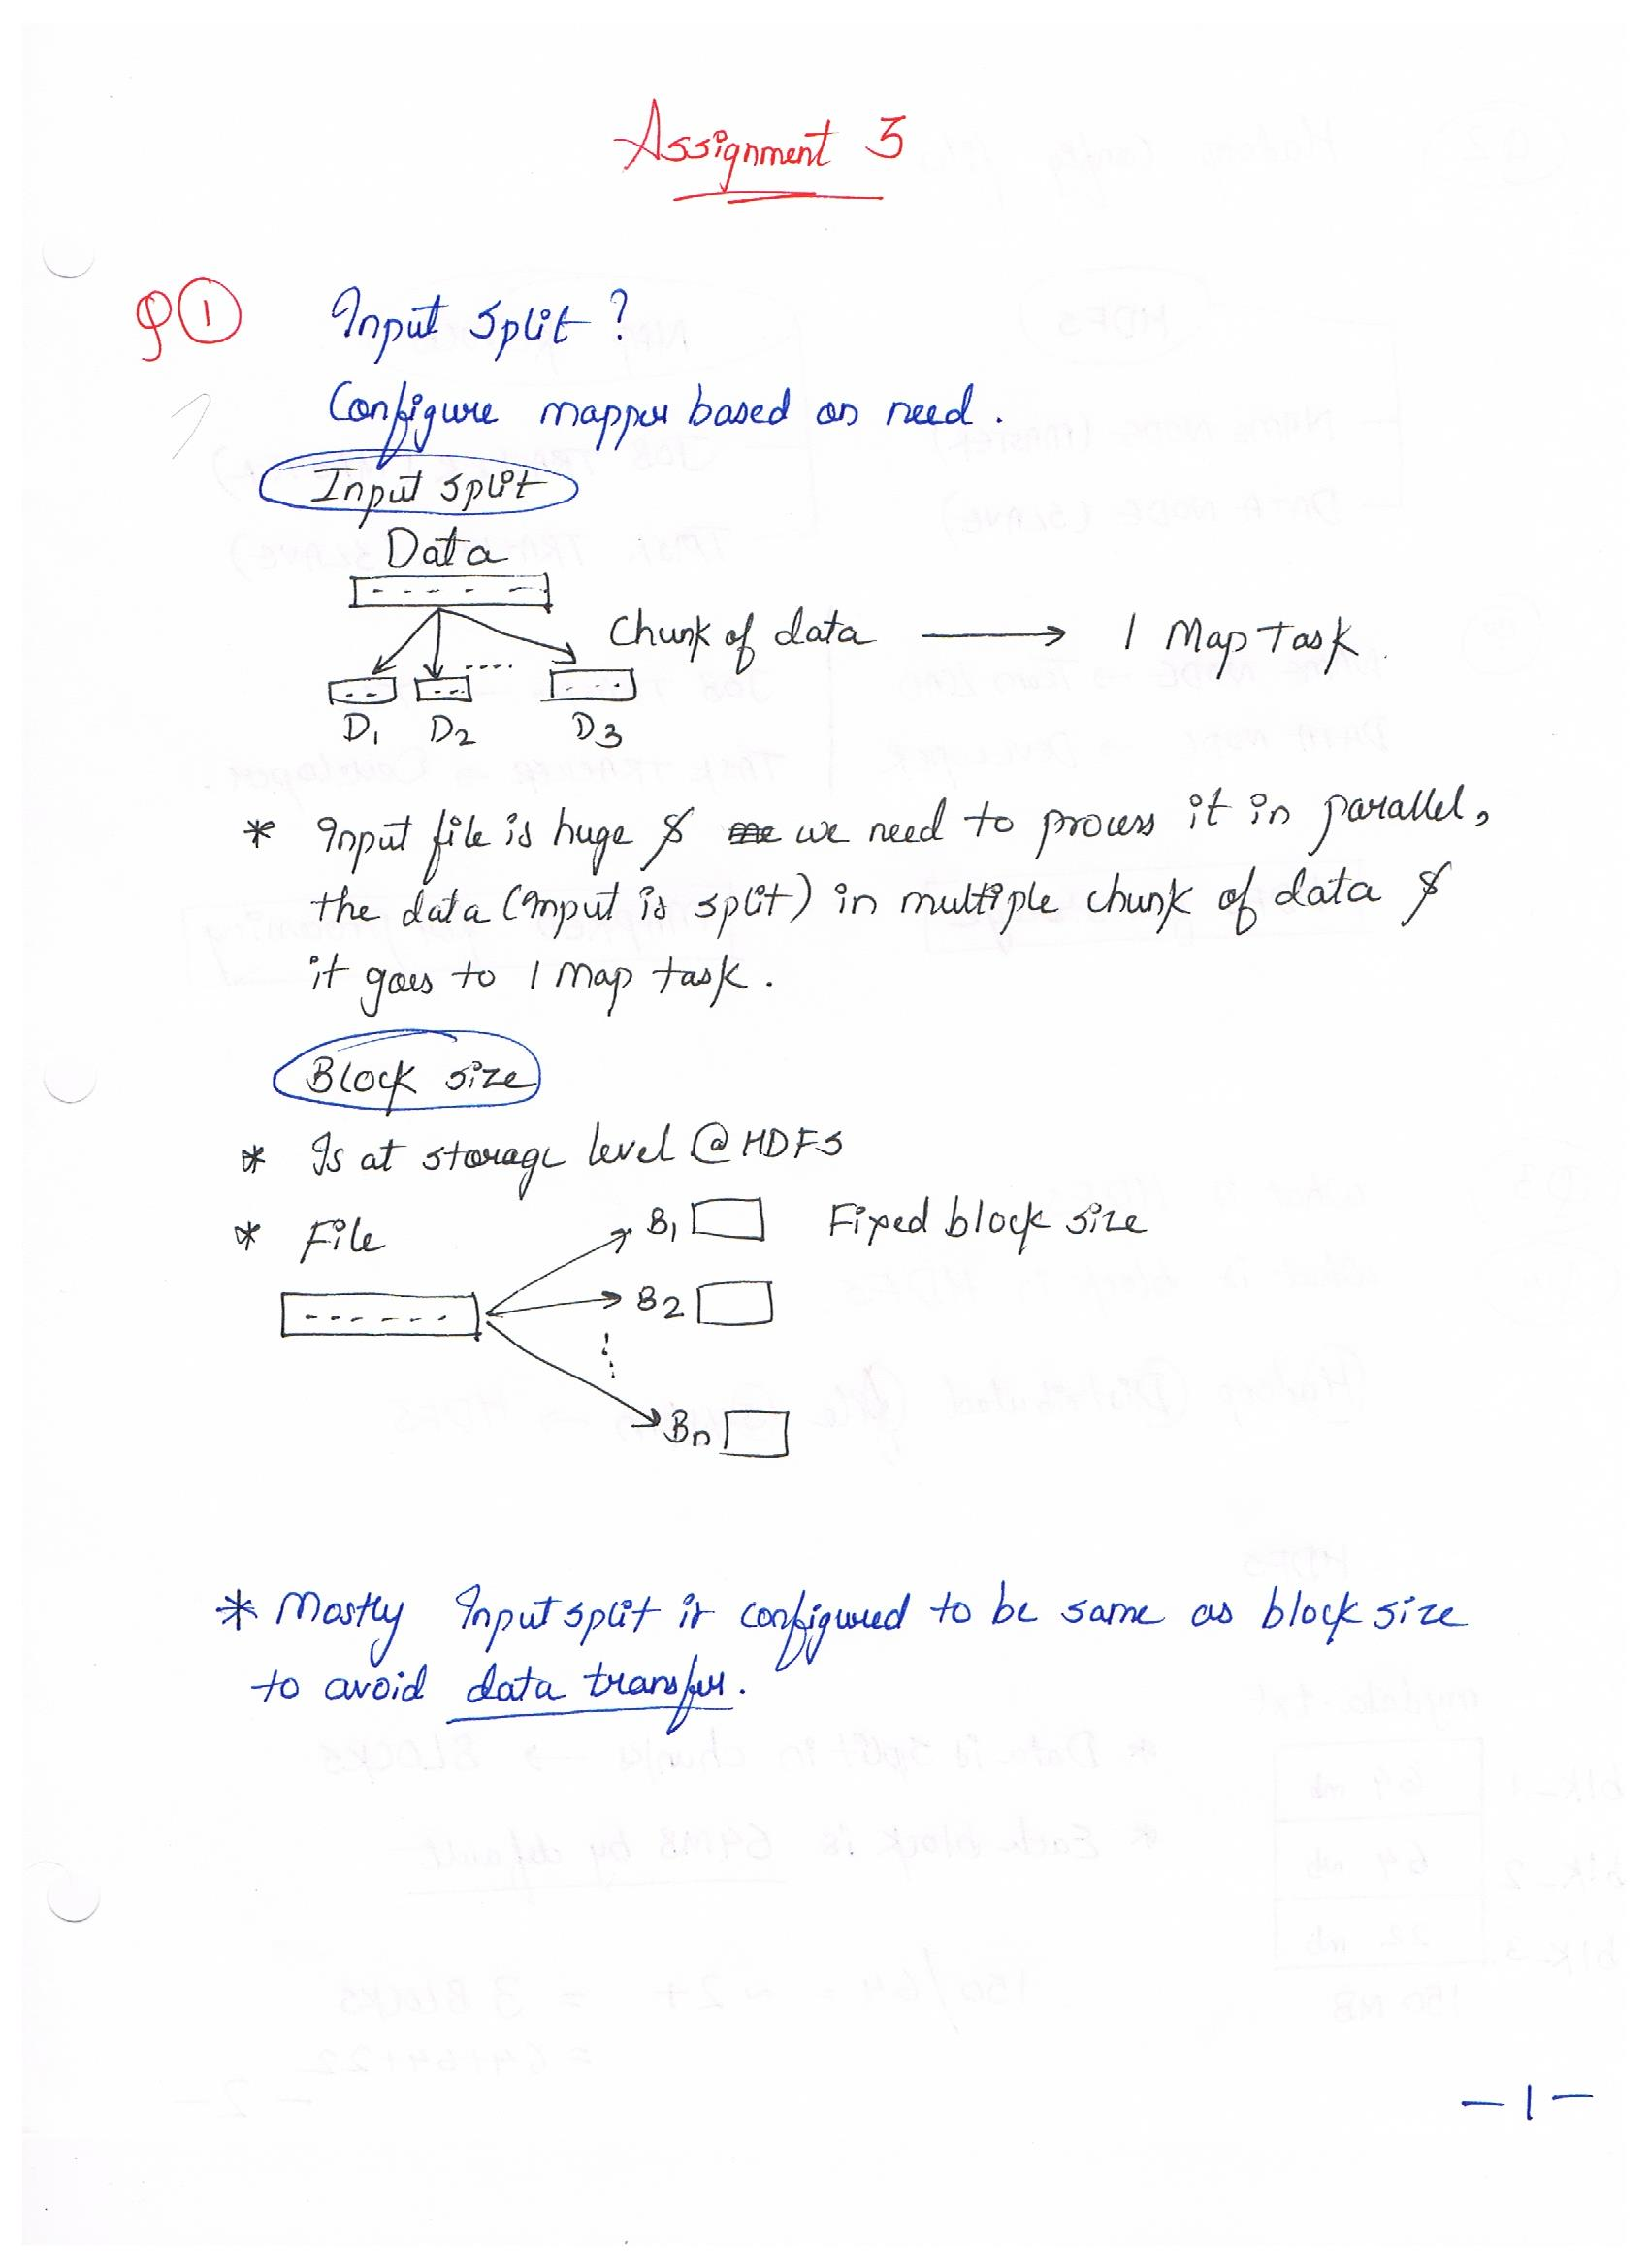 Assignment 3
Q 1 Input Split?
Configure mapper based on need.
Input split
Data
Chunk of data → 1 Map Task
D1 D2 D3
* Input file is huge & we need to process it in parallel,
the data (input is split) in multiple chunk of data &
it goes to 1 map task.
Block size
* Is at storage level @ HDFS
* File
B1 Fixed block size
B2
Bn
* Mostly Input split is configured to be same as block size
to avoid data transfer.
-1-